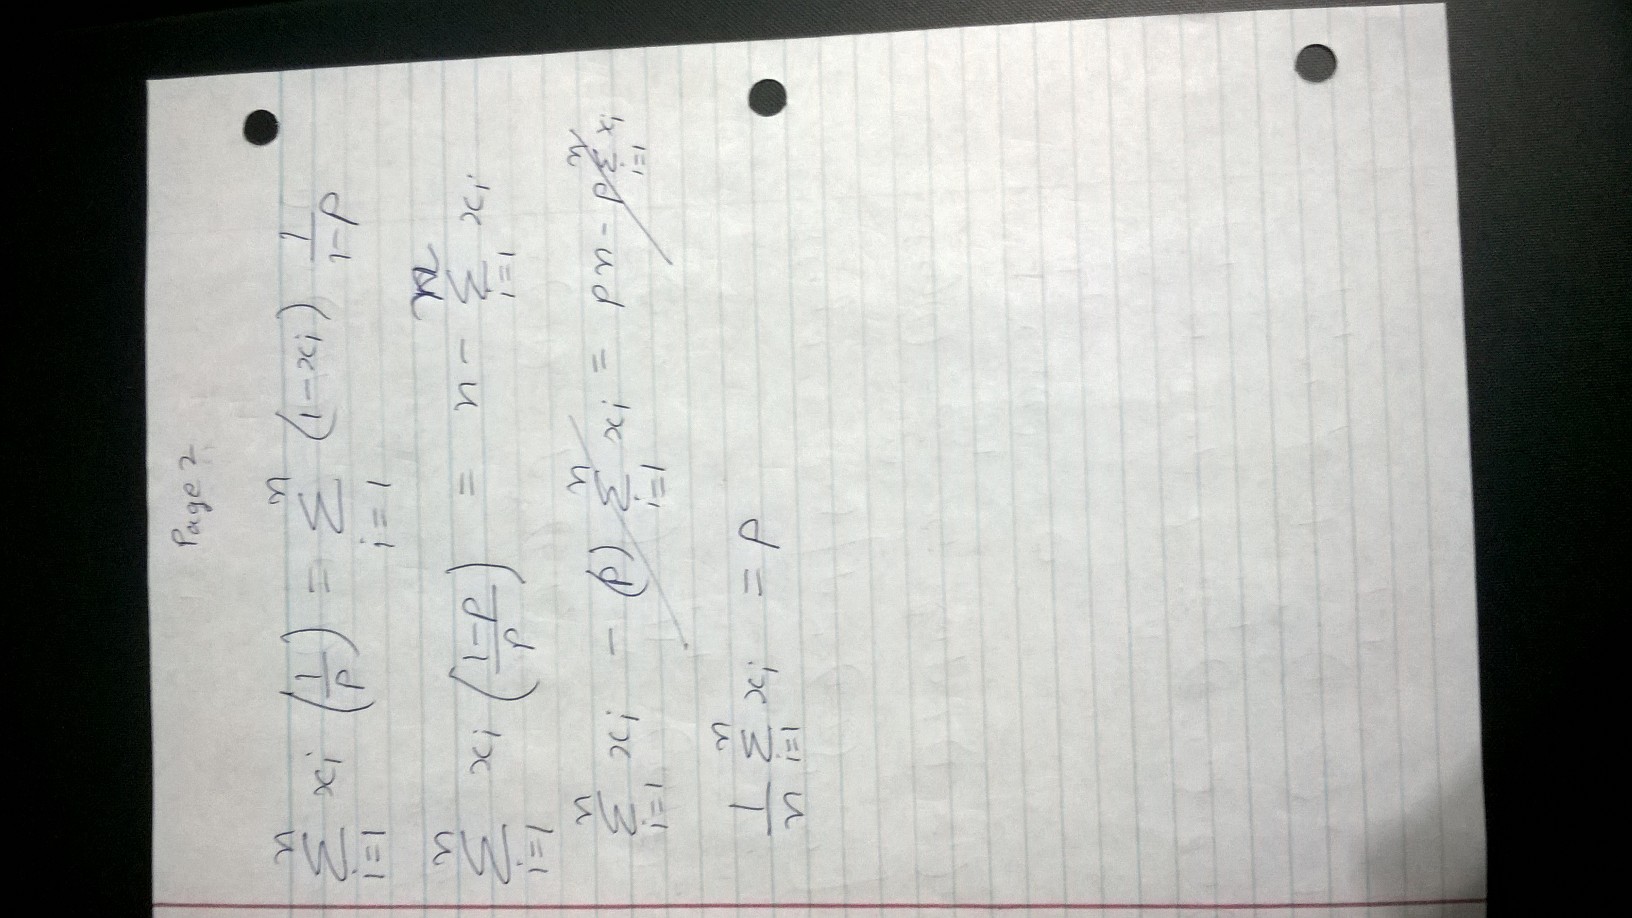 Page 2
\sum_{i=1}^{n} x_i \left(\frac{1}{p}\right) = \sum_{i=1}^{n} (1-x_i) \frac{1}{1-p}
\sum_{i=1}^{n} x_i \left(\frac{1-p}{p}\right) = n - \sum_{i=1}^{n} x_i
\sum_{i=1}^{n} x_i - (p) \sum_{i=1}^{n} x_i = pn - p \sum_{i=1}^{n} x_i
\frac{1}{n} \sum_{i=1}^{n} x_i = p